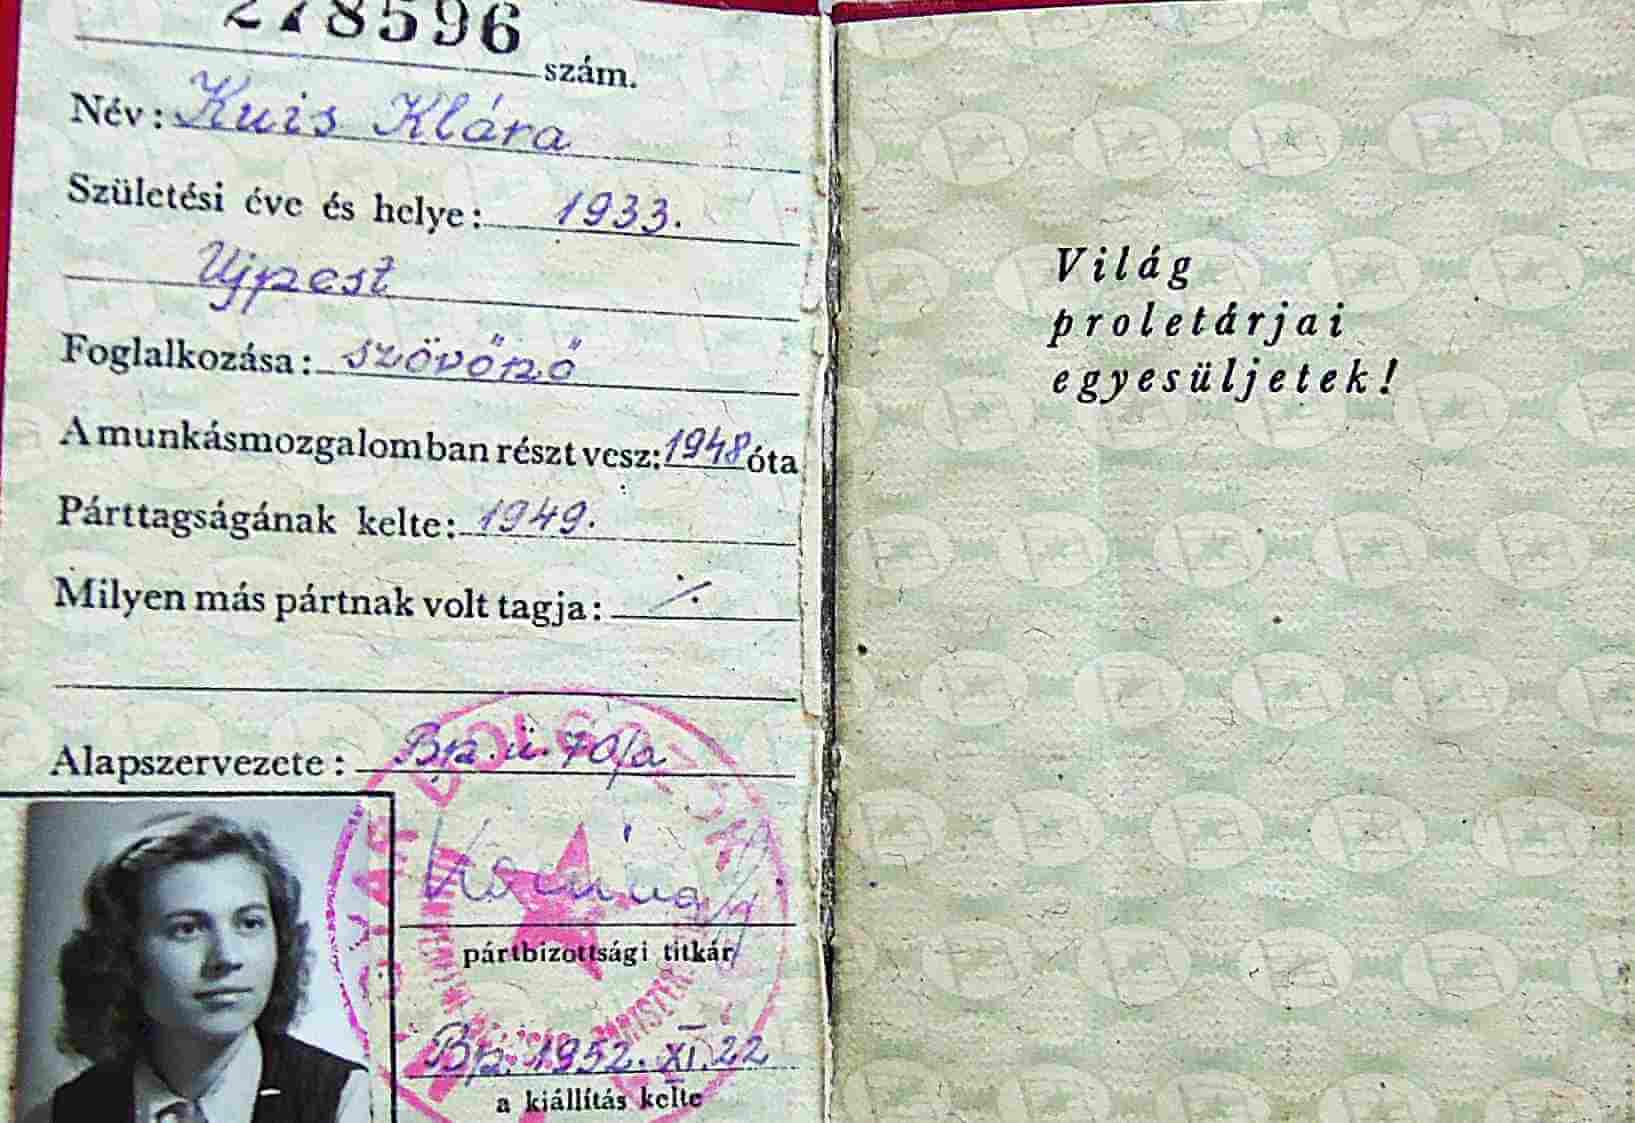 278596
szám.
Név: Kuis Klára
Születési éve és helye: 1933.
Ujpest
Foglalkozása: szövőnő
A munkásmozgalomban részt vesz: 1948 óta
Párttagságának kelte: 1949.
Milyen más pártnak volt tagja: ./.
Alapszervezete: Bp. ü. 70/a
pártbizottsági titkár
Bp. 1952. XI. 22
a kiállítás kelte
Világ
proletárjai
egyesüljetek!